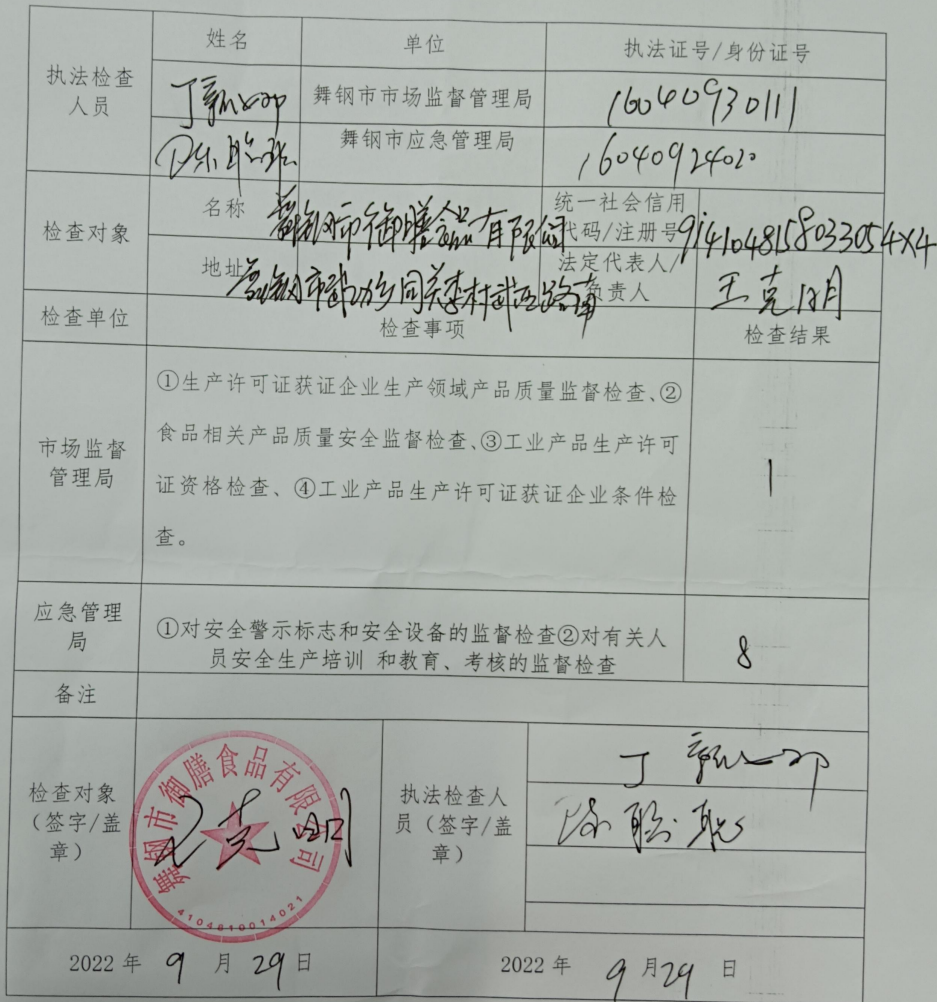 姓名 单位 执法证号/身份证号
执法检查
人员
丁 舞钢市市场监督管理局 16040930111
舞钢市应急管理局 16040924020
检查对象
名称 舞钢市御膳食品有限公司 统一社会信用
代码/注册号 9141048158033054X4
地址 法定代表人/
负责人 王克明
检查单位 检查事项 检查结果
市场监督
管理局
①生产许可证获证企业生产领域产品质量监督检查、②
食品相关产品质量安全监督检查、③工业产品生产许可
证资格检查、④工业产品生产许可证获证企业条件检
查。
1
应急管理
局
①对安全警示标志和安全设备的监督检查②对有关人
员安全生产培训 和教育、考核的监督检查
8
备注
检查对象
(签字/盖
章)
舞钢市御膳食品有限公司
王克明
4104810014021
执法检查人
员(签字/盖
章)
丁
2022 年 9 月 29 日 2022 年 9 月 29 日